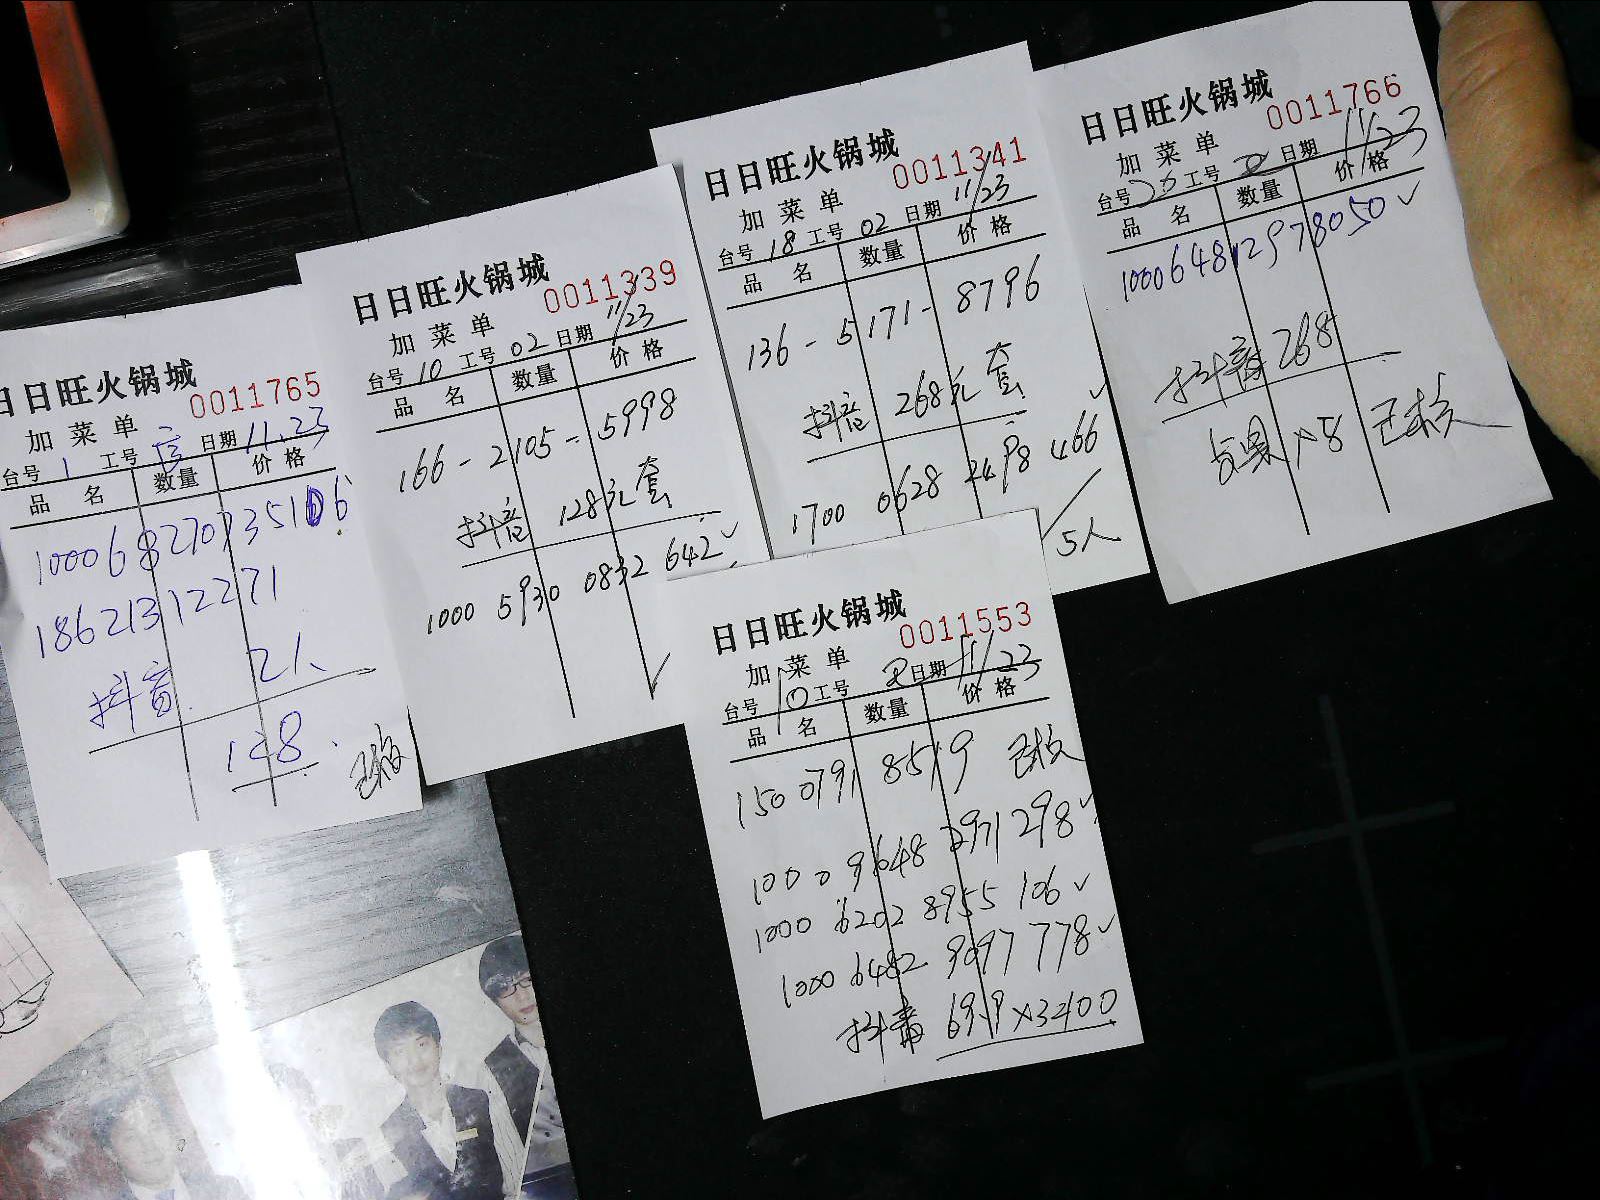 日日旺火锅城
0011765
加菜单
台号 1 工号 彦 日期 11.23
品名 数量 价格
186213 12271
抖音 2人
已核
日日旺火锅城
0011339
加菜单
台号 10 工号 02 日期 11/23
品名 数量 价格
166-2105-5998
抖音 128元套
1000 5930 0832 642 ✓
日日旺火锅城
0011341
加菜单
台号 18 工号 02 日期 11/23
品名 数量 价格
136-5171-8796
抖音 268元套
1700 0628 2498 466 ✓
5人
日日旺火锅城
0011766
加菜单
台号 工号 日期 11/23
品名 数量 价格
100064812978050 ✓
抖音268
×8 已核
日日旺火锅城
0011553
加菜单
台号 10 工号 日期 11/23
品名 数量 价格
150 0791 8519 已核
1000 9648 2971 298 ✓
1000 6202 8955 106 ✓
1000 6482 9097 778 ✓
抖音 69.9×3